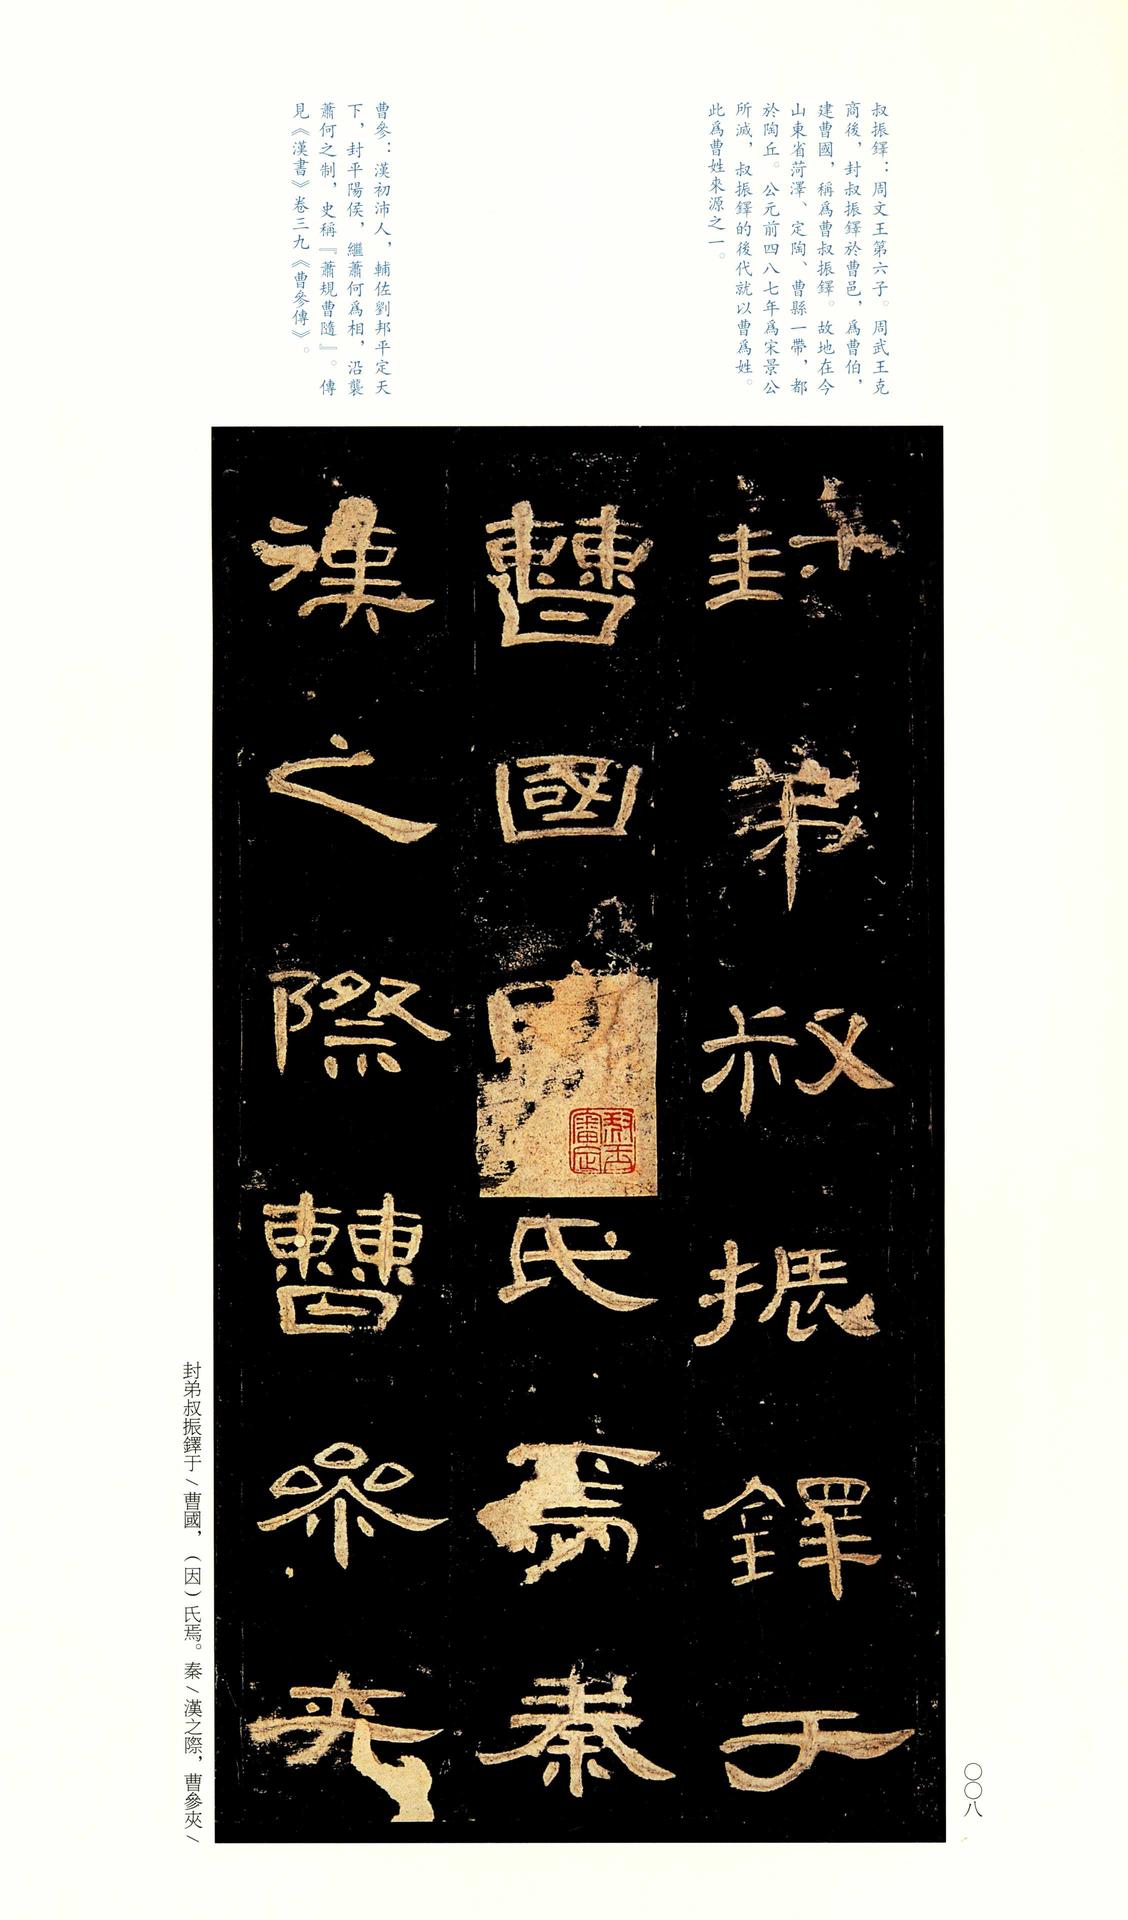 叔振鐸：周文王第六子。周武王克
商後，封叔振鐸於曹邑，爲曹伯，
建曹國，稱爲曹叔振鐸。故地在今
山東省菏澤、定陶、曹縣一帶，都
於陶丘。公元前四八七年爲宋景公
所滅，叔振鐸的後代就以曹爲姓。
此爲曹姓來源之一。
曹參：漢初沛人，輔佐劉邦平定天
下，封平陽侯，繼蕭何爲相，沿襲
蕭何之制，史稱『蕭規曹隨』。傳
見《漢書》卷三九《曹參傳》。
封弟叔振鐸于
曹國氏焉秦
漢之際曹參夾
審定
封弟叔振鐸于／曹國，（因）氏焉。秦／漢之際，曹參夾／
〇〇八